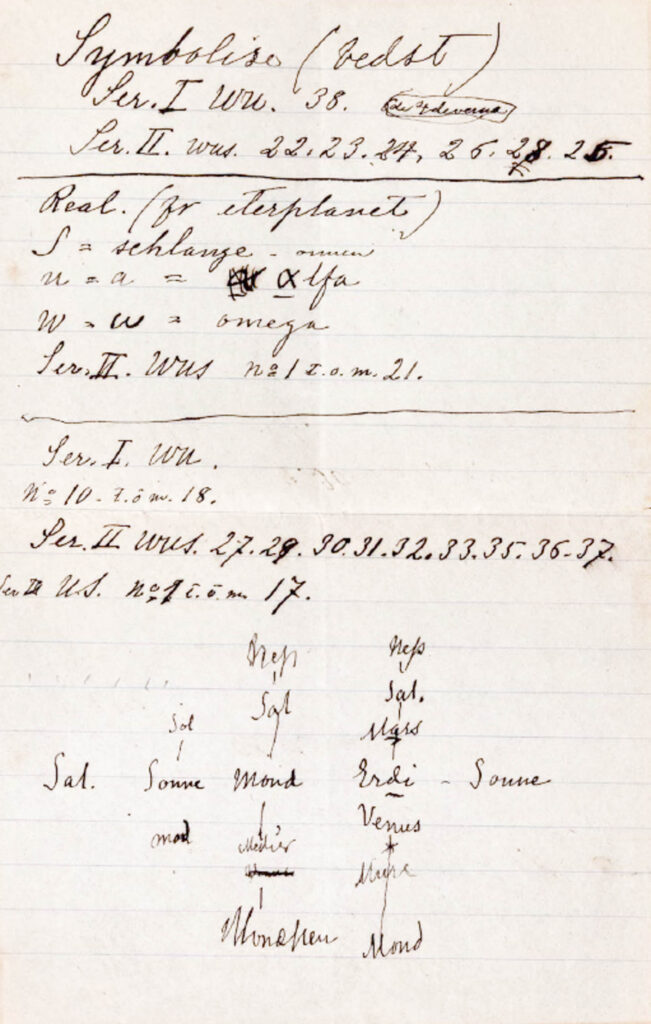 Symbolise (bedst)
Ser. I WU. 38.
Ser. II. wus. 22. 23. 24, 26. 28. 25.
Real. (for eterplanet)
S = schlange -
u = a = alfa
W = ω = omega
Ser. II. WUS no 1 t.o.m. 21.
Ser. I. WU.
No 10. t.o.m. 18.
Ser. II WUS. 27. 29. 30. 31. 32. 33. 35. 36. 37.
Ser III US. no 1 t.o.m. 17.
Nep Nep
Sat Sat.
Sol Mars
Sat. Sonne Mond Erdi - Sonne
Venus
mod
Mond